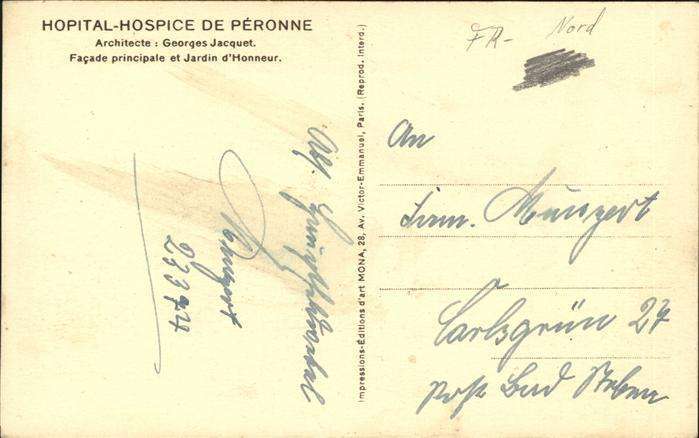 HOPITAL-HOSPICE DE PÉRONNE
Architecte : Georges Jacquet.
Façade principale et Jardin d'Honneur.
Impressions-Éditions d'art MONA, 28, Av. Victor-Emmanuel, Paris. (Reprod. Interd.)
FR- Nord
23374
An
Fam.
Carlsgrün 27
Post Bad Steben